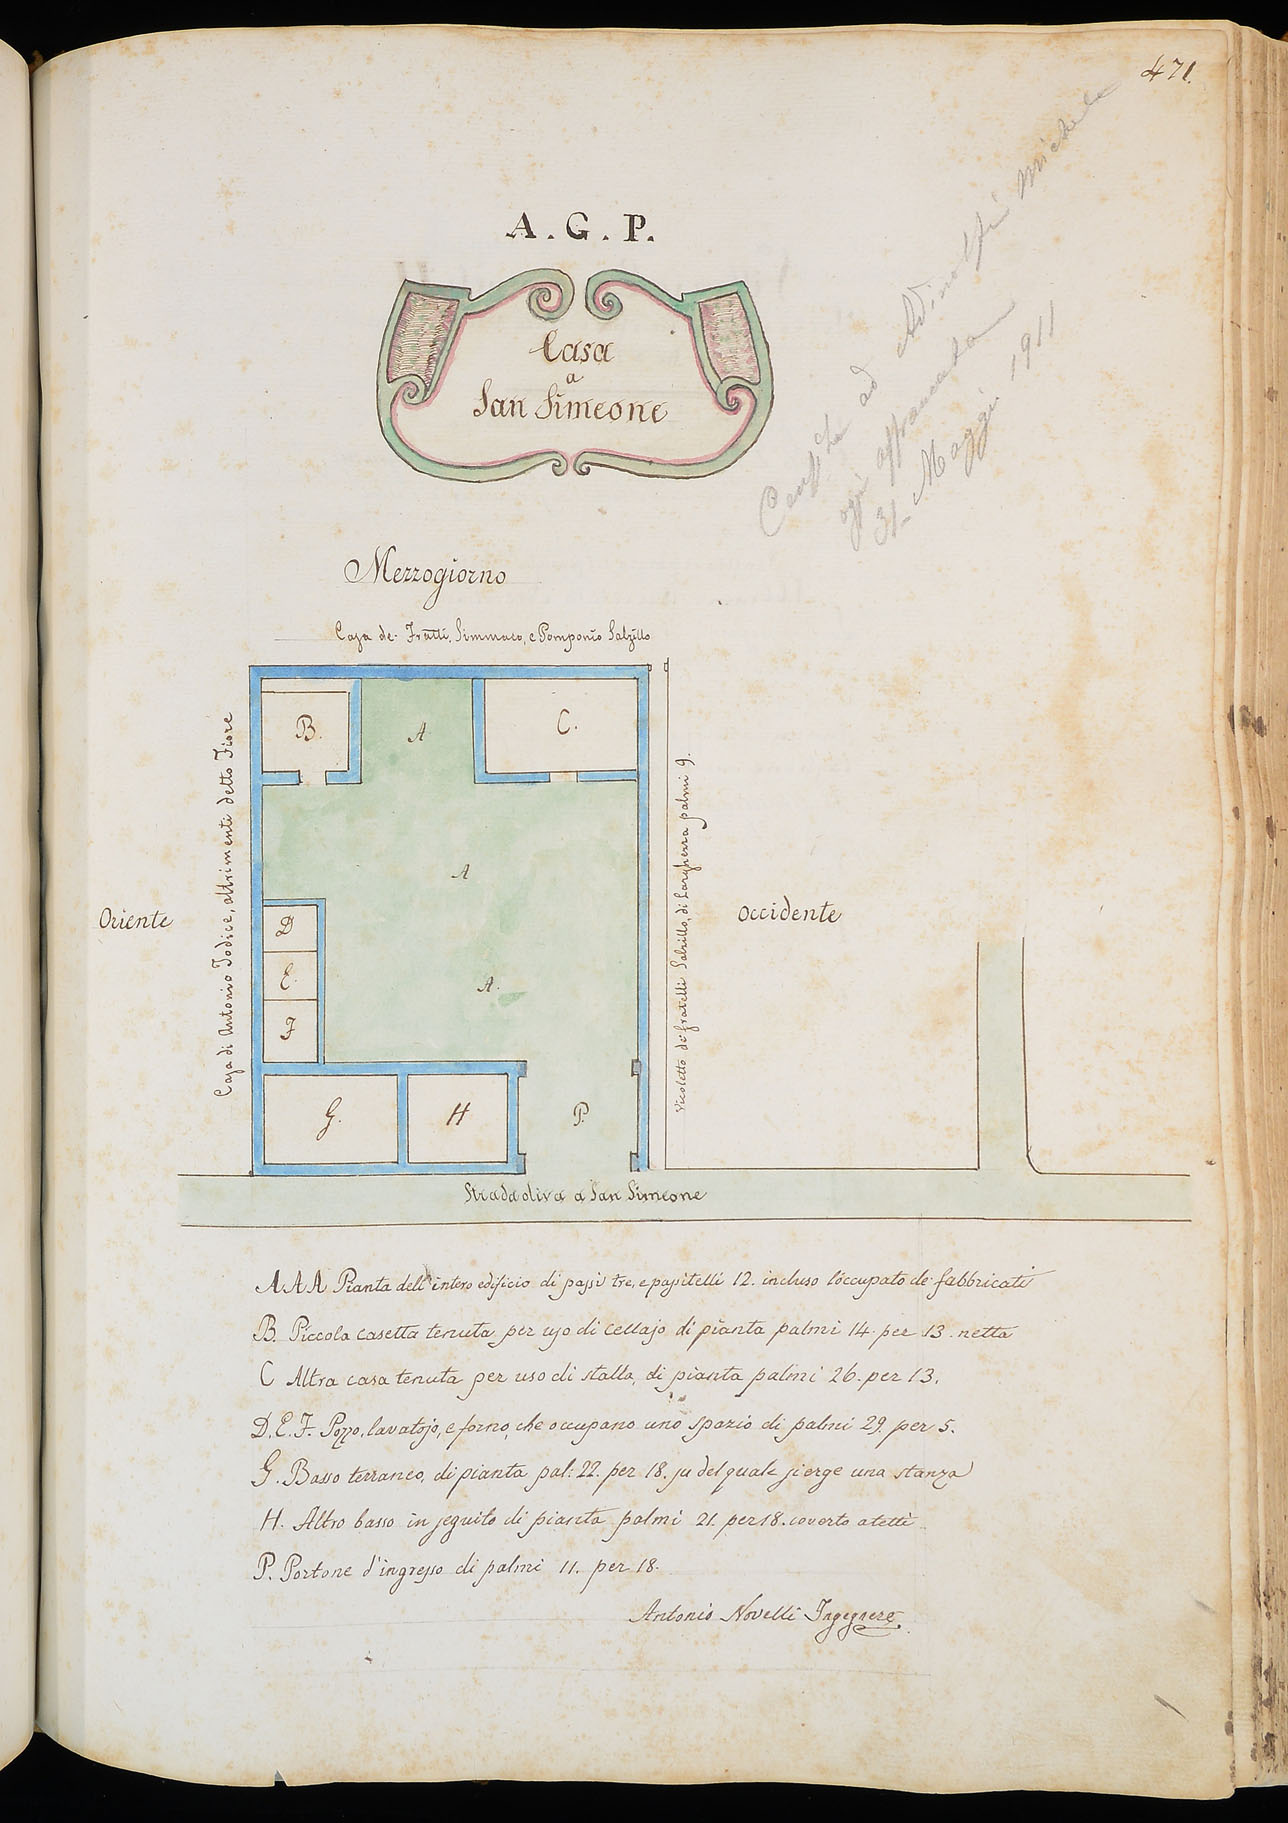 471.
A. G. P.
Casa
a
San Simeone
ad Adinolfi Michele
oggi affrancata
31- Maggio 1911
Mezzogiorno
Casa de' Fratti, Simmaco, e Pomponio Salzillo
B.
A
C.
A
Oriente
Casa di Antonio Jodice, altrimenti detto Fiore
D
E.
F
A.
Vicoletto de' fratelli Salzillo, di Larghezza palmi 9.
Occidente
G.
H
P.
Strada oliva a San Simeone
A A A Pianta dell'intero edificio di passi tre, e passitelli 12. incluso l'occupato de' fabbricati
B. Piccola casetta tenuta per uso di cellajo di pianta palmi 14. per 13. netta
C Altra casa tenuta per uso di stalla, di pianta palmi 26. per 13.
D. E. F. Pozzo, lavatojo, e forno, che occupano uno spazio di palmi 29. per 5.
G. Basso terraneo, di pianta pal: 22. per 18. su del quale si erge una stanza
H. Altro basso in seguito di pianta palmi 21. per 18. coverto a tetti
P. Portone d'ingresso di palmi 11. per 18.
Antonio Novelli Ingegnere